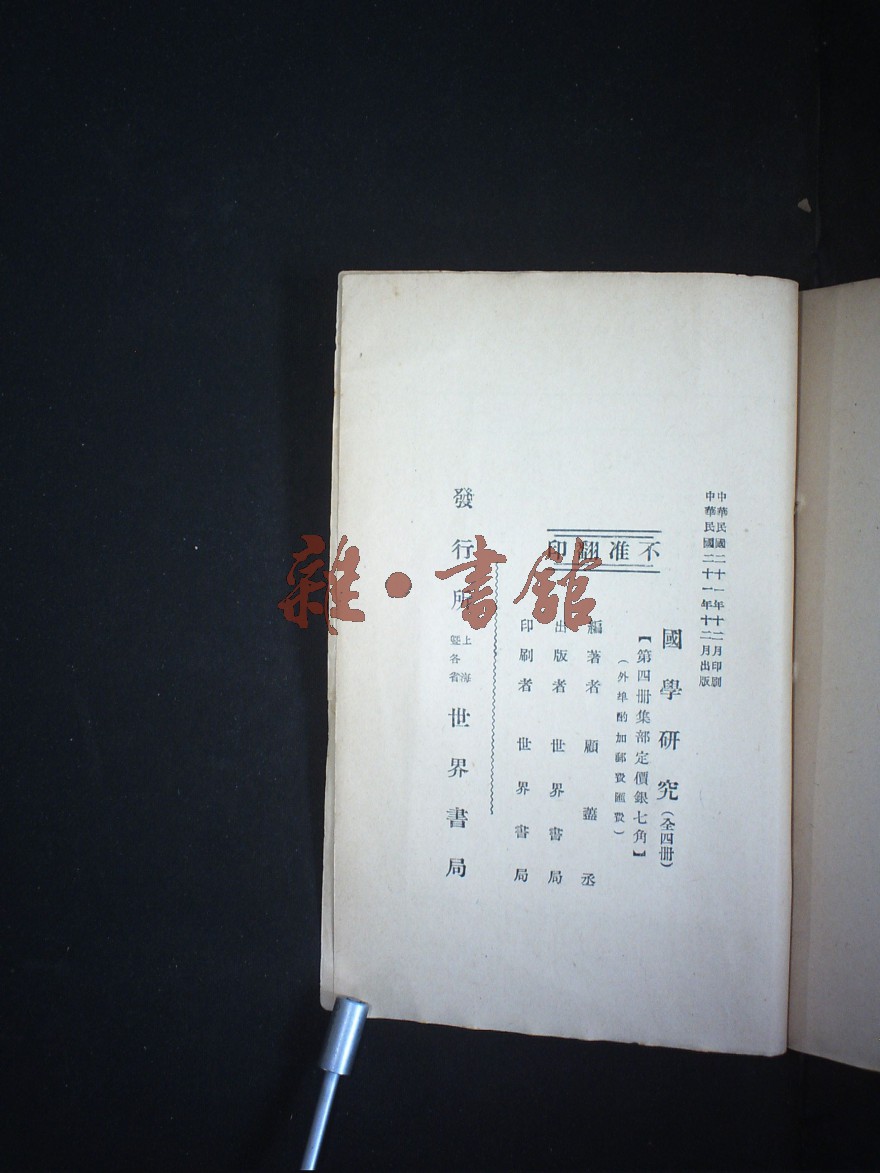 中華民國二十一年十二月印刷
中華民國二十一年十二月出版
國學研究(全四册)
【第四册集部定價銀七角】
(外埠酌加郵費匯費)
不准翻印
編著者 顧藎丞
出版者 世界書局
印刷者 世界書局
發行所 上海暨各省 世界書局
雜·書館